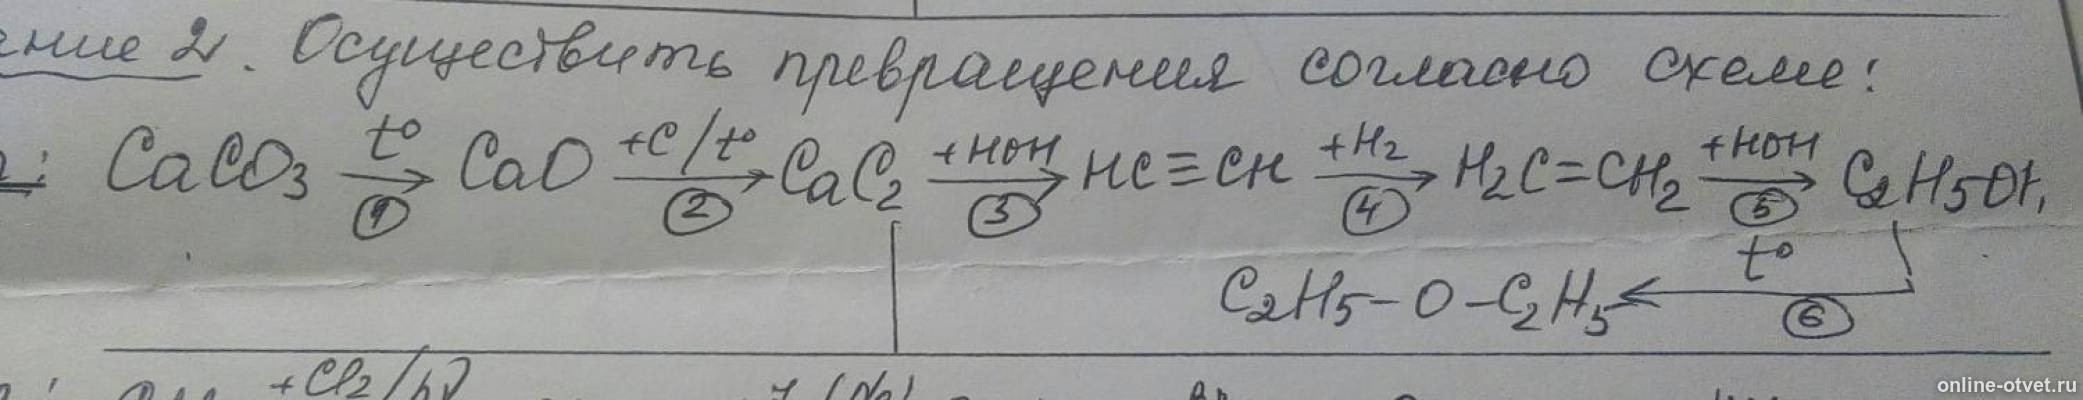 ние 2. Осуществить превращения согласно схеме:
CaCO3 t° → ① CaO +C/t° → ② CaC2 +HOH → ③ HC≡CH +H2 → ④ H2C=CH2 +HOH → ⑤ C2H5OH,
t°
C2H5-O-C2H5 ← ⑥
+Cl2/hν
online-otvet.ru